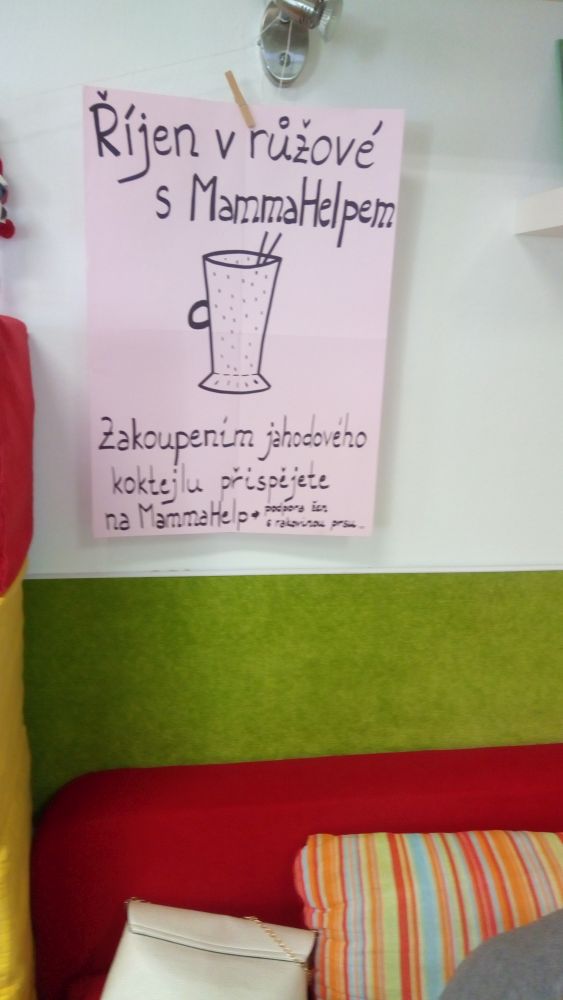 Říjen v růžové
s MammaHelpem
Zakoupením jahodového
koktejlu přispějete
na MammaHelp → podpora žen
s rakovinou prsu...